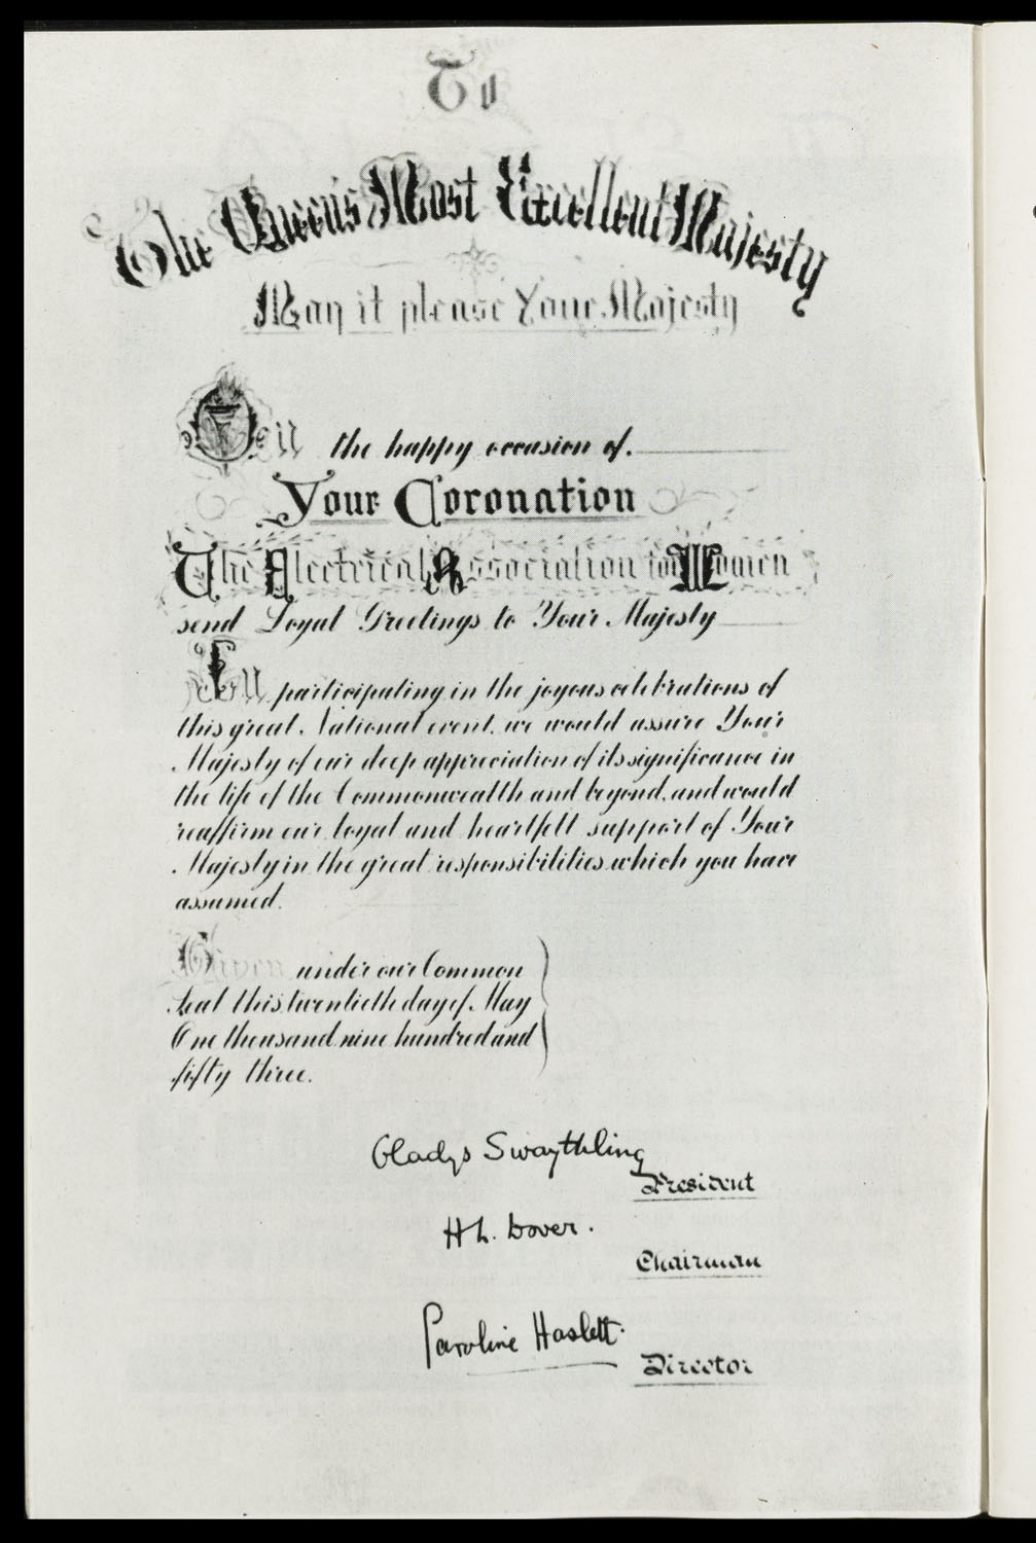 To
The Queen's Most Excellent Majesty
May it please Your Majesty
On the happy occasion of.
Your Coronation
The Electrical Association for Women
send Loyal Greetings to Your Majesty
In participating in the joyous celebrations of
this great National event, we would assure Your
Majesty of our deep appreciation of its significance in
the life of the Commonwealth and beyond, and would
reaffirm our loyal and heartfelt support of Your
Majesty in the great responsibilities which you have
assumed.
Given under our Common
Seal this twentieth day of May
One thousand nine hundred and
fifty three.
Gladys Swaythling
President
H L. Dover.
Chairman
Caroline Haslett.
Director